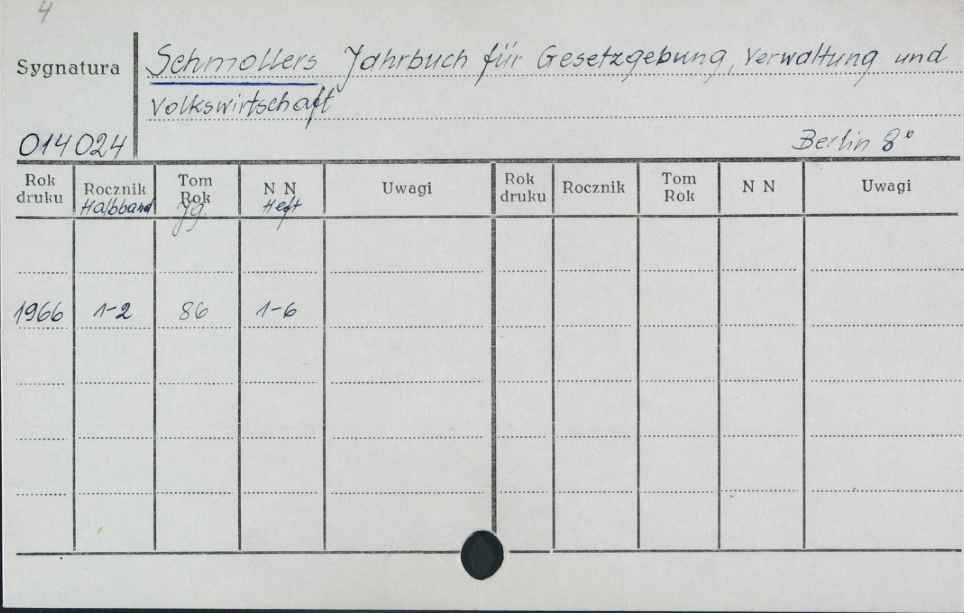 4
Sygnatura
Schmollers Jahrbuch für Gesetzgebung, Verwaltung und
Volkswirtschaft
014024
Berlin 8°
Rok druku Rocznik Halbband Tom Rok Jg. N N Heft Uwagi Rok druku Rocznik Tom Rok N N Uwagi
1966 1-2 86 1-6